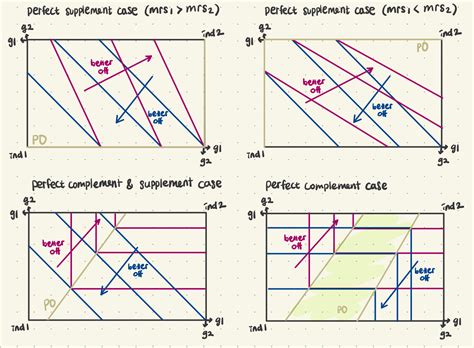 perfect supplement case (mrs1 > mrs2)
g2
ind 2
g1
better off
better off
PO
ind 1
g1
g2
perfect supplement case (mrs1 < mrs2)
g2
ind 2
g1
PO
better off
better off
ind 1
g1
g2
perfect complement & supplement case
g2
ind 2
g1
better off
better off
PO
ind 1
g1
g2
perfect complement case
g2
ind 2
g1
better off
better off
PO
ind 1
g1
g2